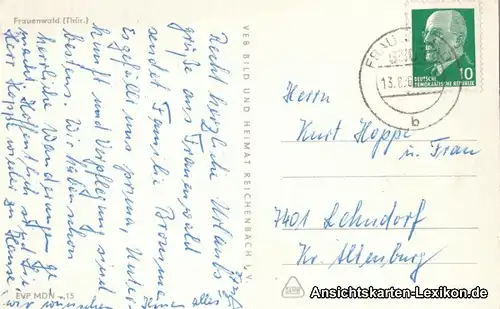 Frauenwald (Thür.)
Recht herzliche Urlaubs
grüße aus Frauenwald
sendet Familie
Es gefällt uns prima, Unter-
kunft und Verpflegung sind
bestens. Wir haben schon
herrliche Wanderungen ge
macht. Hoffentlich ist
Herr Hoppe wieder zu Hause,
wir wünschen
Ihnen alles
EVP MDN -,15
VEB BILD UND HEIMAT REICHENBACH I. V.
FRAU
13.8.
b
10
DEUTSCHE
DEMOKRATISCHE REPUBLIK
Herrn
Kurt Hoppe
u. Frau
7401 Lehndorf
Kr. Altenburg
Ansichtskarten-Lexikon.de